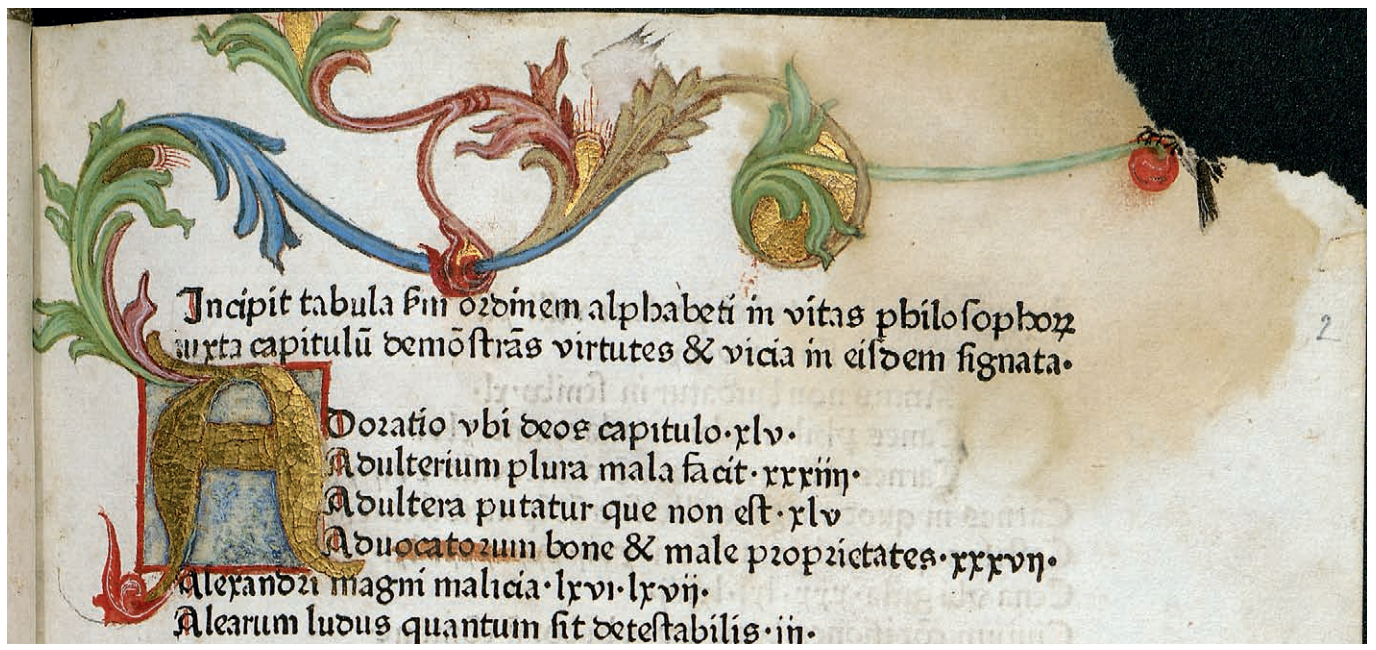 Incipit tabula ẜm ordinem alphabeti in vitas philosophoꝝ
iuxta capitulū demōstrās virtutes & vicia in eisdem signata.
2
ADoratio vbi deos capitulo·xlv·
Adulterium plura mala facit·xxxiiij·
Adultera putatur que non est·xlv
Aduocatorum bone & male proprietates·xxxvij·
Alexandri magni malicia·lxvi·lxvij·
Alearum ludus quantum sit detestabilis·iij·